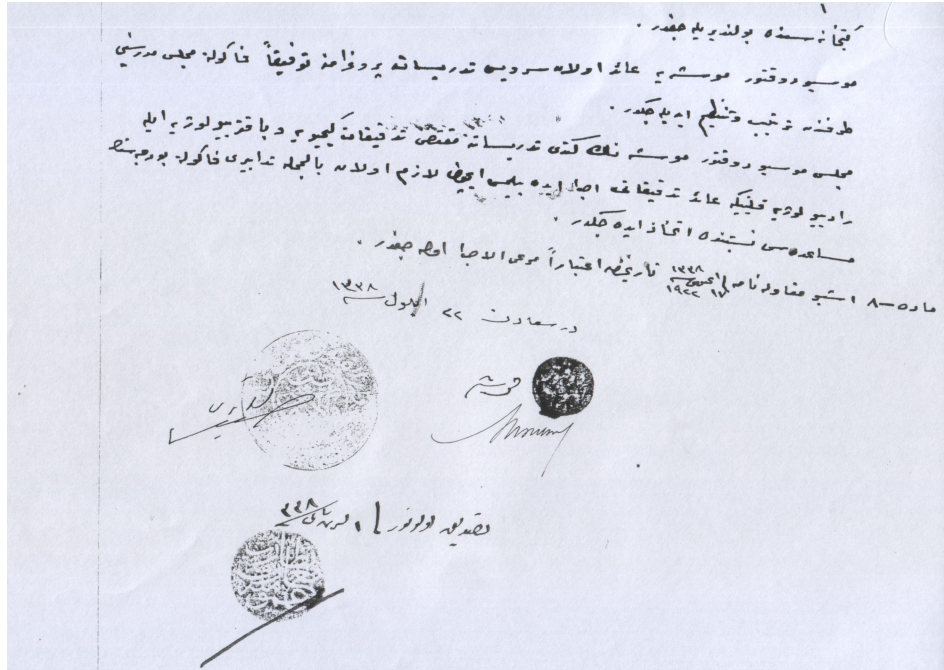 كتبخانه سنده بولنديريله جقدر .
موسيو دوقتور موشه يه عائد اولان سرويس تدريساته پروغرامنه توفيقاً فاكولته مجلس مدرسينى
طرفندن ترتيب وتنظيم ايديله جكدر .
مجلس موسيو دوقتور موشه نك كندى تدريساتنه مقتضى تدقيقات كيميويه و باقتريولوژيه ايله
راديولوژيه قلينيكه عائد تدقيقات اجرا ايده بيلمسى ايچون لازم اولان بالجمله تدابيرى فاكولته بودجه سنك
مساعده سى نسبتنده اتخاذ ايده جكدر .
ماده ٨ اشبو مقاوله نامه ١٣٣٨ ١٧ ١٩٢٢ تاريخندن اعتباراً مرعى الاجرا اوله جقدر .
در سعادت ٢٢ ايلول ١٣٣٨
موشه
تصديق اولونور ٣٣٨